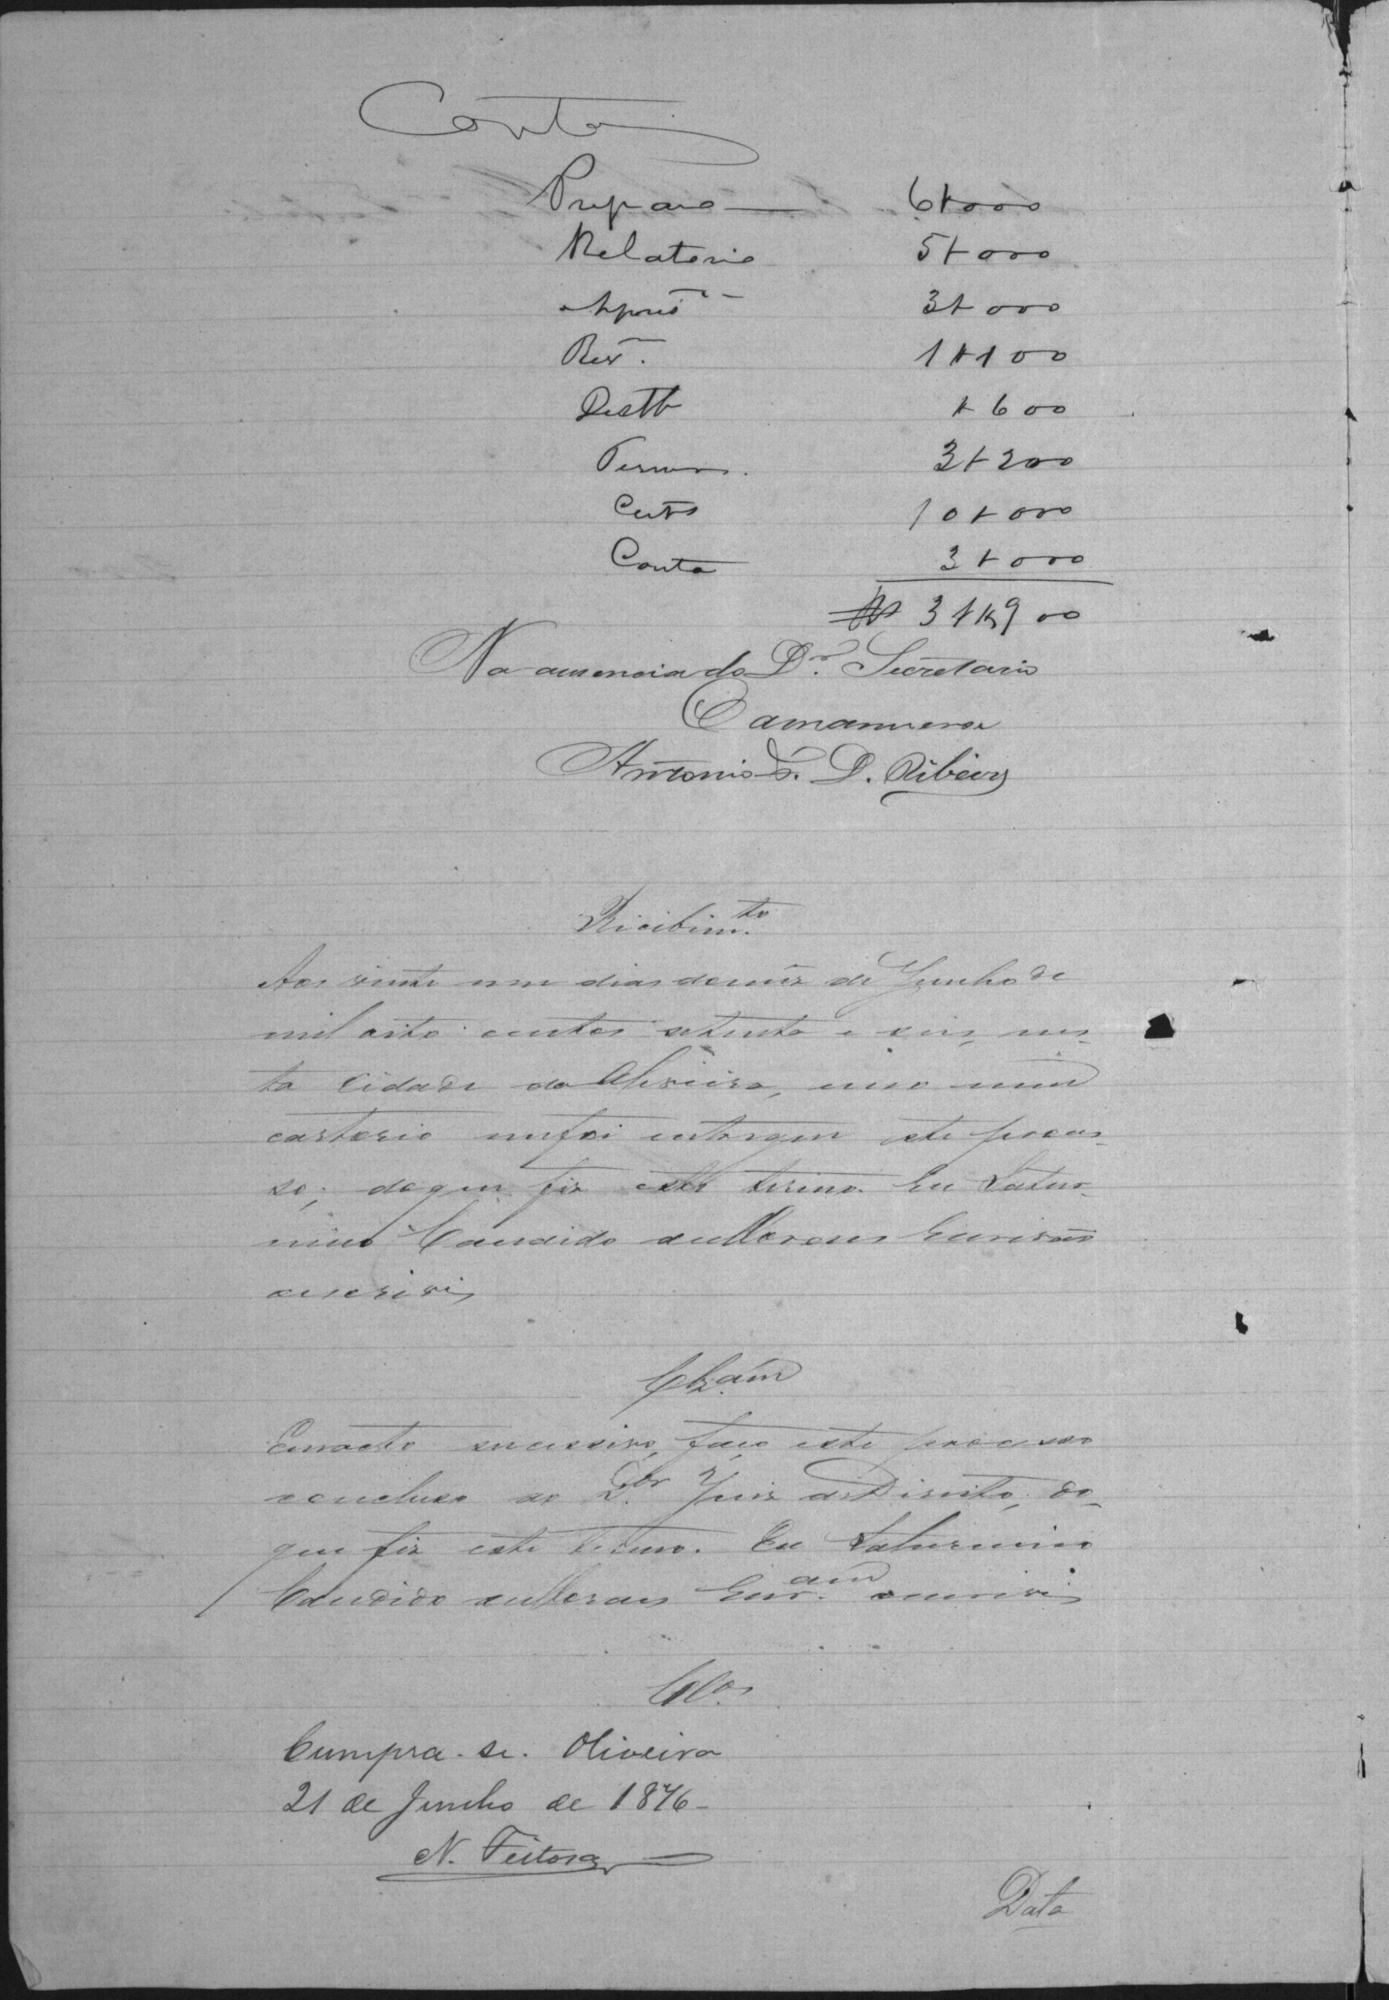 Conta
Preparo — 6$000
Relatorio 5$000
3$000
1$100
Distb $600
Termos. 3$200
10$000
Conta 3$000
Rs 31$900
Na ausencia do Dr. Secretario
O amanuense
Antonio F. D. Ribeiro
Recebimto.
Aos vinte um dias do mês de Junho de
mil oito centos setenta e seis, nes-
ta Cidade da Oliveira, em meu
cartorio me foi entregue este proces-
so; do que fiz este termo. Eu Satur-
nino Candido de Moraes Escrivão
escrivi
Clzam
Em acto successivo, faço este processo
concluso ao Dor. Juiz de Direito, do
que fiz este termo. Eu Saturnino
Candido de Moraes Escram. escrivi
Clos
Cumpra-se. Oliveira
21 de Junho de 1876-
N. Feitosa
Data